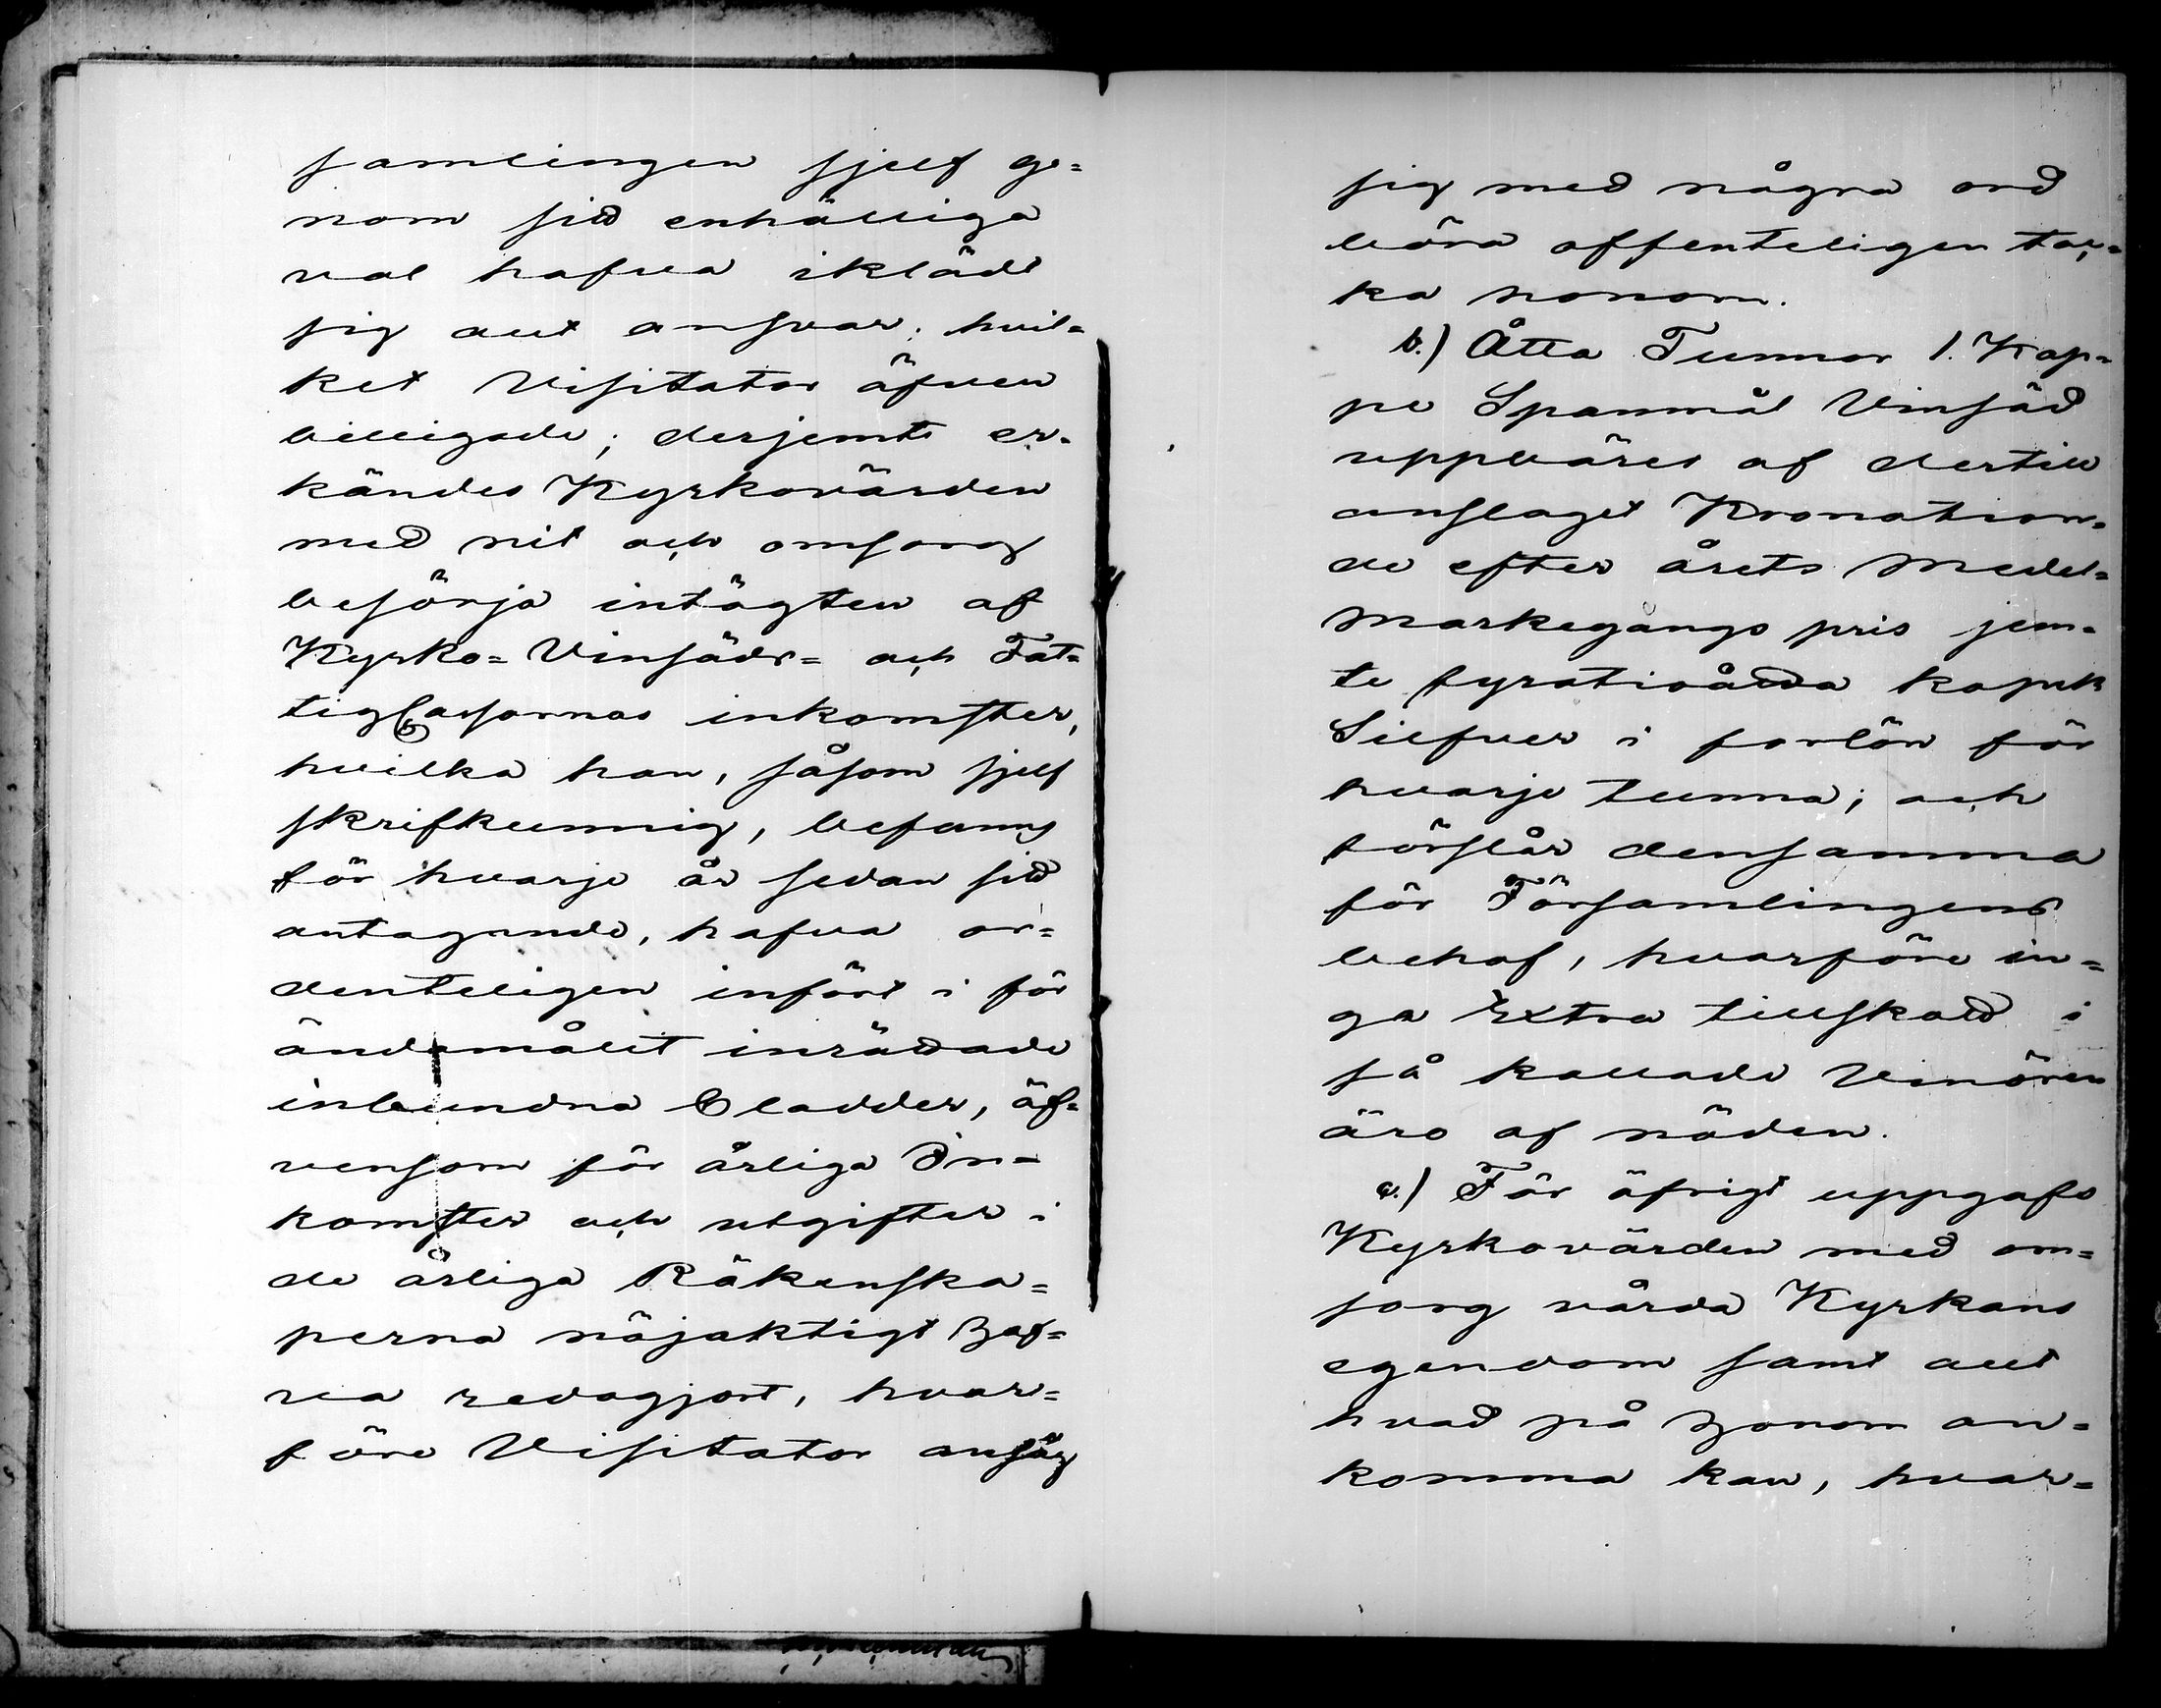 samlingen sjelf ge=
nom sitt enhälliga
val hafva iklädt
sig allt ansvar; hvil=
ket Visitator äfven
billigade; derjemte er=
kändes Kyrkovärden
med nit och omsorg
besörja intägten af
Kyrko= Vinsäds= och Fat=
tigCassornas inkomster,
hvilka han, såsom sjelf
skrifkunnig, befanns
för hvarje år sedan sitt
antagande, hafva or=
denteligen infört i för
ändamålet inrättade
inbundna Cladder, äf=
vensom för årliga In=
komster och utgifter i
de årliga Räkenska=
perna nöjaktigt haf=
va redogjort, hvar=
före Visitator ansåg
sig med några ord
böra offenteligen tac=
ka honom.
b.) Åtta Tunnor 1. Kap=
pe Spanmål Vinsäd
uppbäres af dertill
anslaget Kronotion=
de efter årets Medel=
Markegångs pris jem=
te fyratioåtta kopek
Silfver i forlön för
hvarje tunna; och
förslår densamma
för Församlingens
behof, hvarföre in=
ga Extra tillskott i
så kallade Vinören
äro af nöden.
c.) För öfrigt uppgafs
Kyrkovärden med om=
sorg vårda Kyrkans
egendom samt allt
hvad på honom an=
komma kan, hvar=